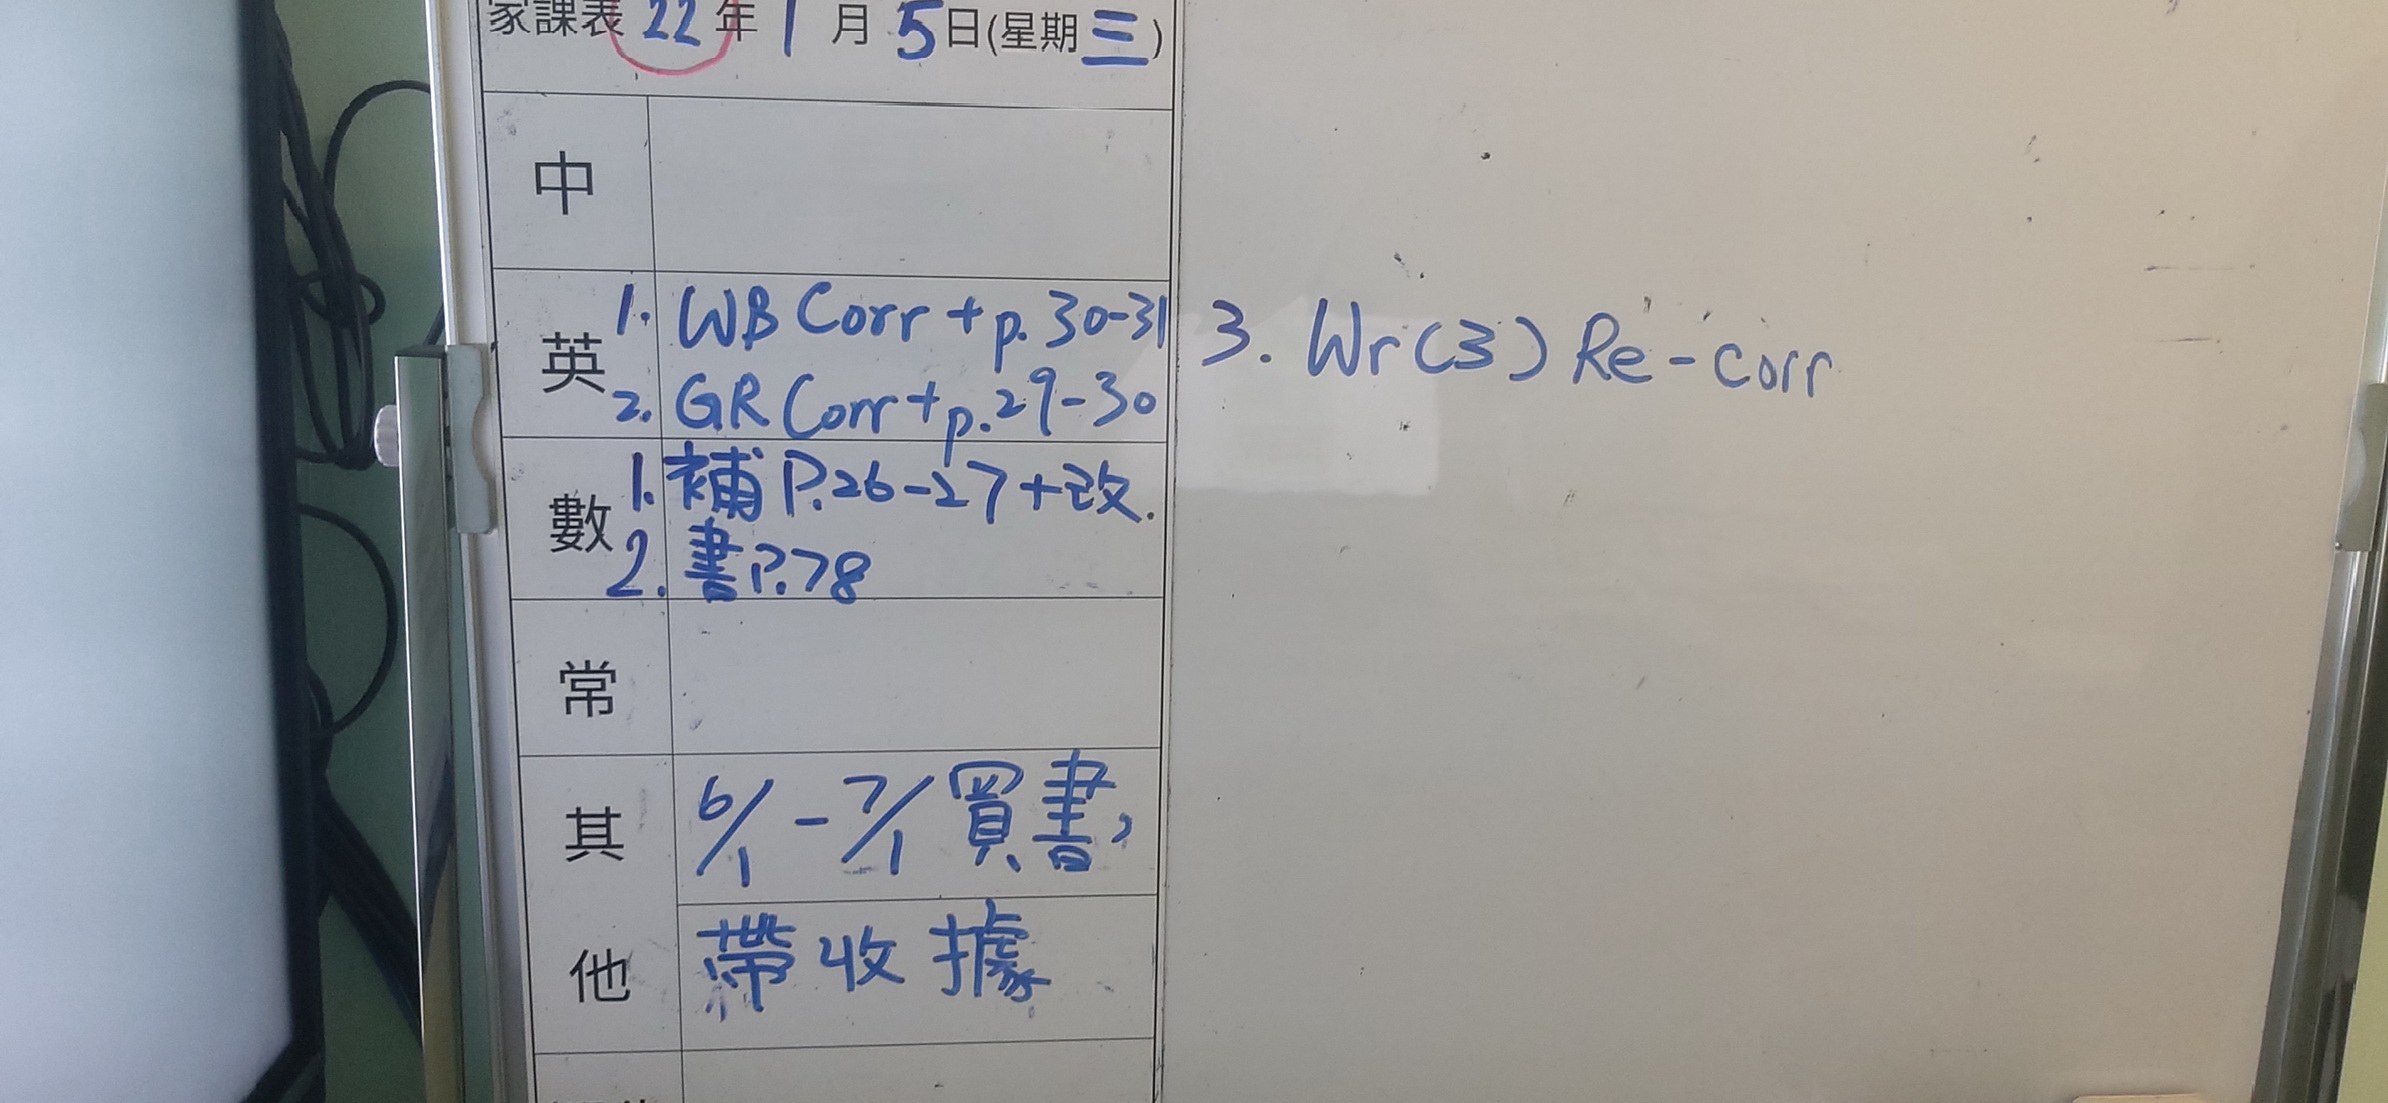 家課表 22年 1 月 5日(星期三)
中
英
1. WB Corr + p. 30-31
2. GR Corr + p.29-30
3. Wr(3) Re-corr
數
1. 補 P.26-27+改.
2. 書P.78
常
其他
6/1 - 7/1 買書,
帶收據